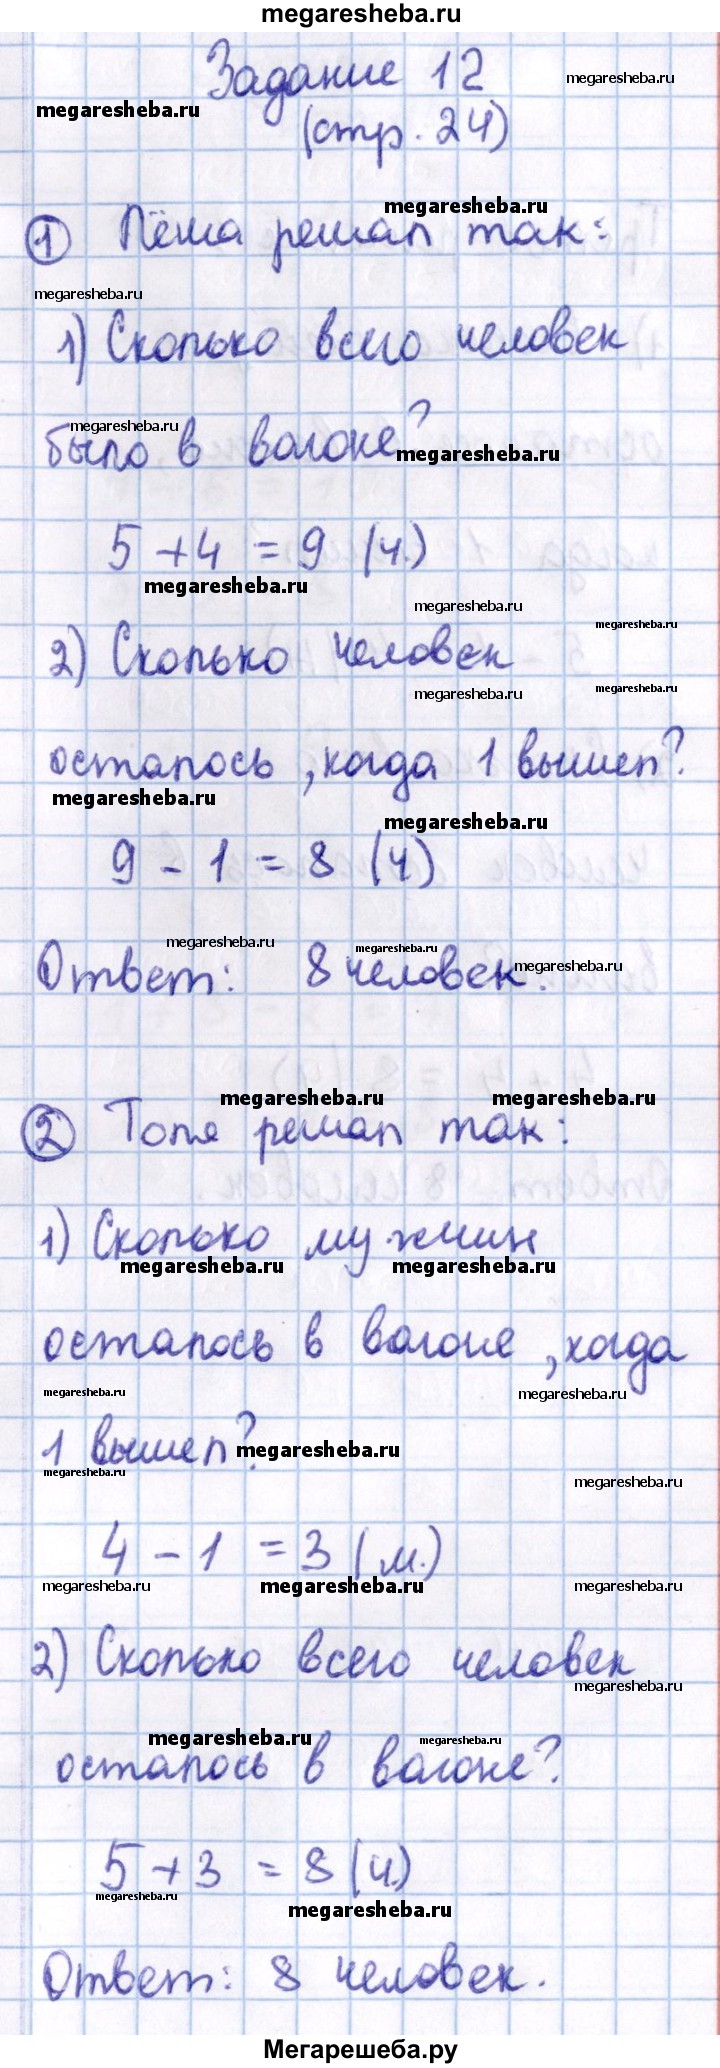 megaresheba.ru
Задание 12
megaresheba.ru
megaresheba.ru
(стр. 24)
megaresheba.ru
1 Лёша решал так:
megaresheba.ru
1) Сколько всего человек
megaresheba.ru
было в вагоне?
megaresheba.ru
5 + 4 = 9 (ч.)
megaresheba.ru
megaresheba.ru
megaresheba.ru
2) Сколько человек
megaresheba.ru
megaresheba.ru
осталось, когда 1 вышел?
megaresheba.ru
megaresheba.ru
9 - 1 = 8 (ч)
megaresheba.ru
megaresheba.ru
Ответ: 8 человек.
megaresheba.ru
megaresheba.ru
megaresheba.ru
2 Толя решал так:
1) Сколько мужчин
megaresheba.ru
megaresheba.ru
осталось в вагоне, когда
megaresheba.ru
megaresheba.ru
1 вышел?
megaresheba.ru
megaresheba.ru
megaresheba.ru
4 - 1 = 3 (м.)
megaresheba.ru
megaresheba.ru
megaresheba.ru
2) Сколько всего человек
megaresheba.ru
megaresheba.ru
megaresheba.ru
осталось в вагоне?
5 + 3 = 8 (ч.)
megaresheba.ru
megaresheba.ru
Ответ: 8 человек.
Мегарешеба.ру